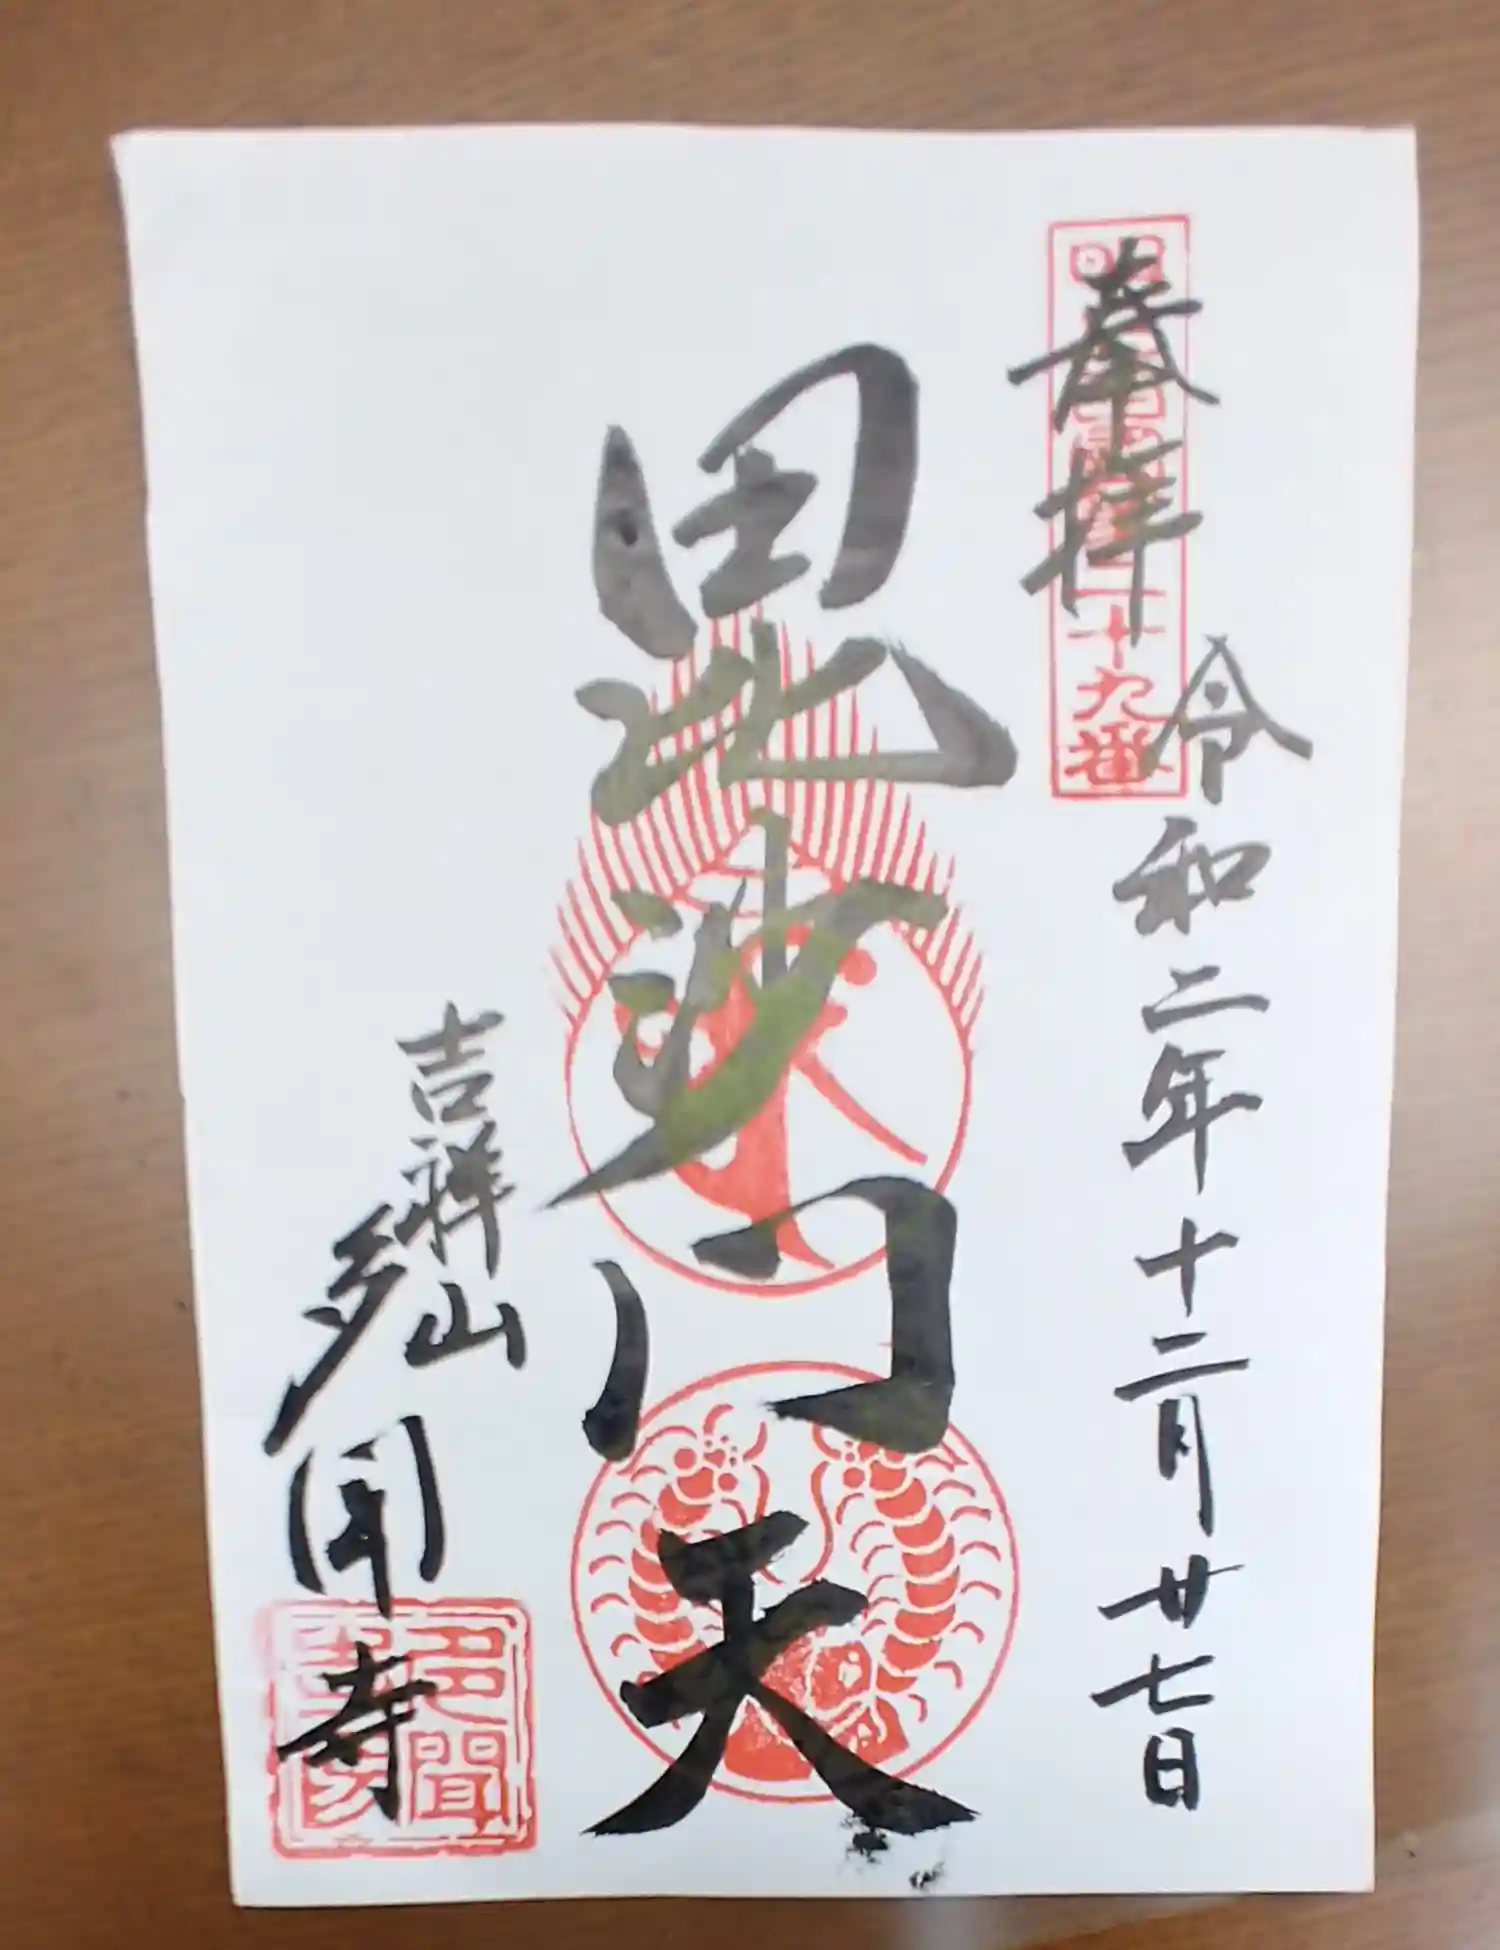 奉拝
令和二年十二月廿七日
毘沙門天
吉祥山
多聞寺
十九番